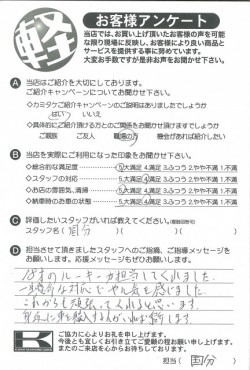 軽
お客様アンケート
当店では、お買い上げ頂いたお客様の声を可能
な限り現場に反映し、お客様により良い商品と
サービスを提供する事に努めています。
大変お手数ですが是非お声をお聞かせ下さい。
A 当店はご紹介を大切にしております。
ご紹介キャンペーンについてお聞かせ下さい。
◇カミタケご紹介キャンペーンのご説明はありましたでしょうか
はい いいえ
◇具体的にご紹介頂ける方とのご関係をお聞かせ頂けますでしょうか
ご親族 ご友人 職場の方 機会があれば紹介したい
B 当店を実際にご利用になった印象をお聞かせ下さい。
◇総合的な満足度 5.大満足 4.満足 3.ふつう 2.やや不満 1.不満
◇スタッフの対応 5.大満足 4.満足 3.ふつう 2.やや不満 1.不満
◇お店の雰囲気、清掃 5.大満足 4.満足 3.ふつう 2.やや不満 1.不満
◇納車時のお車の状態 5.大満足 4.満足 3.ふつう 2.やや不満 1.不満
C 評価したいスタッフがいれば教えてください。(複数回答可)
スタッフ名( 国分 )( )( )
D 担当させて頂きましたスタッフへのご指摘、ご指導メッセージを
お願いします。応援メッセージもぜひご記入下さい。
18才のルーキーが担当してくれました。
一生懸命な対応でやる気を感じました。
これからも頑張ってくれると思います。
ご協力に心よりお礼を申し上げます。
今後とも宜しくお引き立てご愛顧の程お願い申し上げます。
またのご来店を心からお待ちしております。
担当( 国分 )